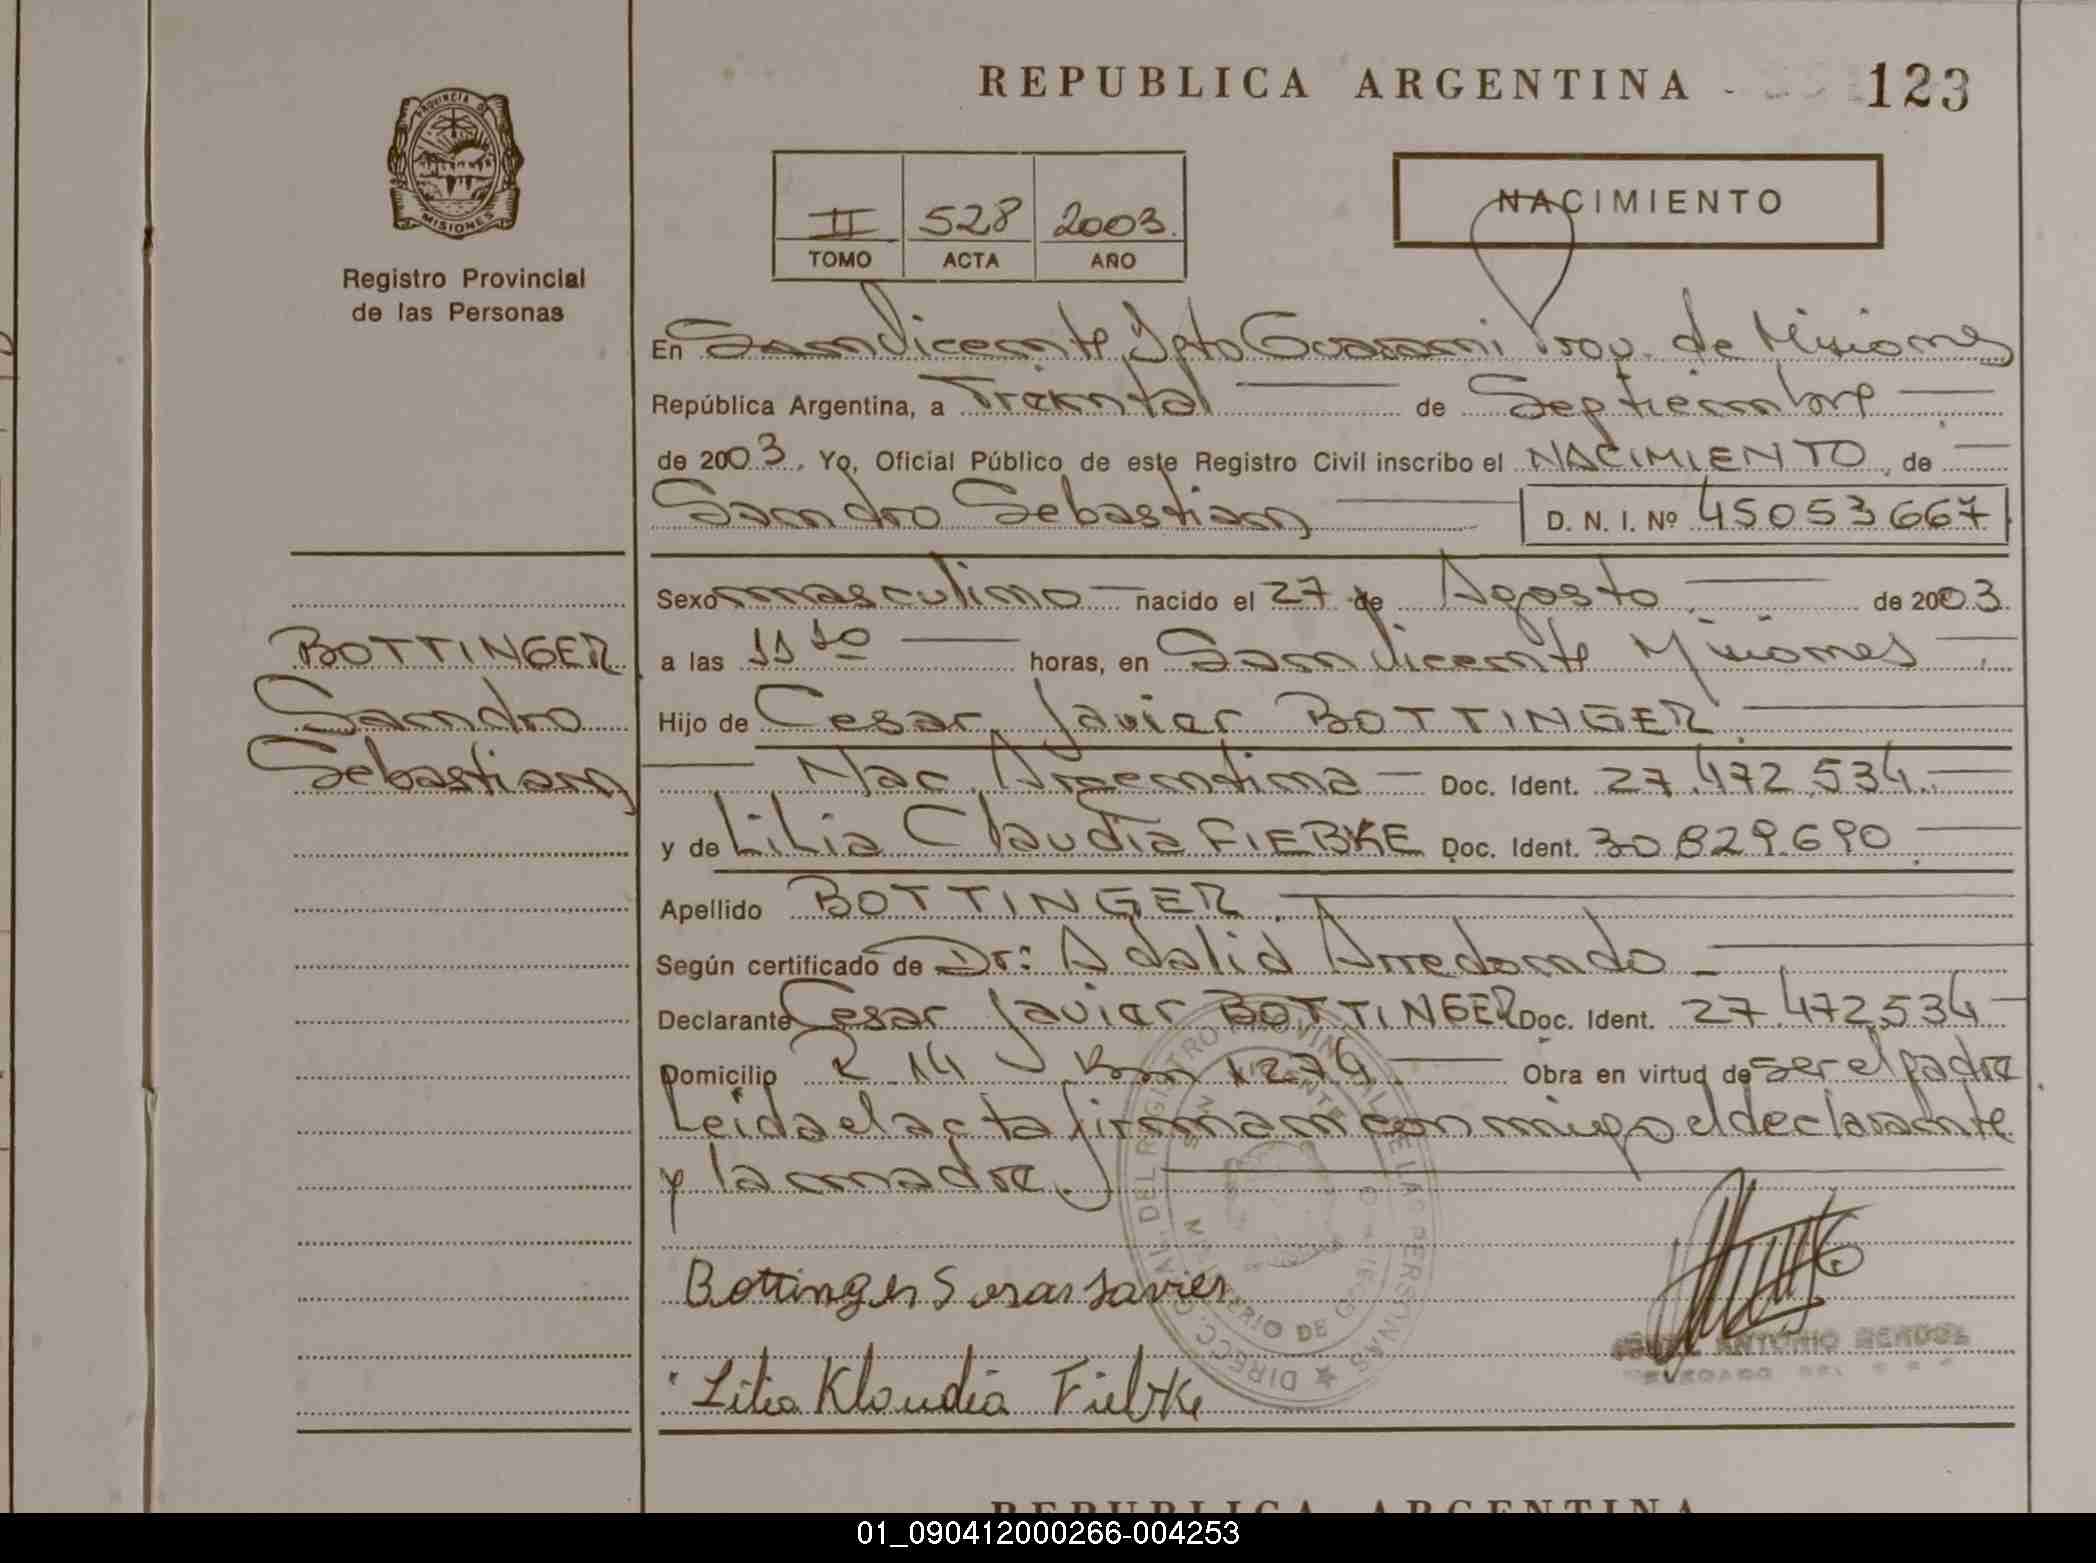 REPUBLICA ARGENTINA
123
PROVINCIA DE
MISIONES
Registro Provincial
de las Personas
II 528 2003.
TOMO ACTA AÑO
NACIMIENTO
En San Vicente Dpto Guarani Prov. de Misiones
República Argentina, a Treinta de Septiembre
de 2003. Yo, Oficial Público de este Registro Civil inscribo el NACIMIENTO de
Sandro Sebastian
D. N. I. Nº 45053667
BOTTINGER
Sandro
Sebastian
Sexo masculino nacido el 27 de Agosto de 2003.
a las 11 10 horas, en San Vicente Misiones
Hijo de Cesar Javier BOTTINGER
Nac. Argentina Doc. Ident. 27.472.534
y de Lilia Claudia FIEBKE Doc. Ident. 30.829.690
Apellido BOTTINGER
Según certificado de Dr: Adalid Arredondo
Declarante Cesar Javier BOTTINGER Doc. Ident. 27.472.534
Domicilio R 14 Km 1274 Obra en virtud de ser el padre
Leida el acta firman conmigo el declarante
y la madre
Bottinger Sesar Javier
Lilia Klaudia Fiebke
ANTONIO
DIRECC. GRAL. DEL REGISTRO PROVINCIAL DE LAS PERSONAS
MINISTERIO DE GOBIERNO
SAN VICENTE
REPUBLICA ARGENTINA
01_090412000266-004253